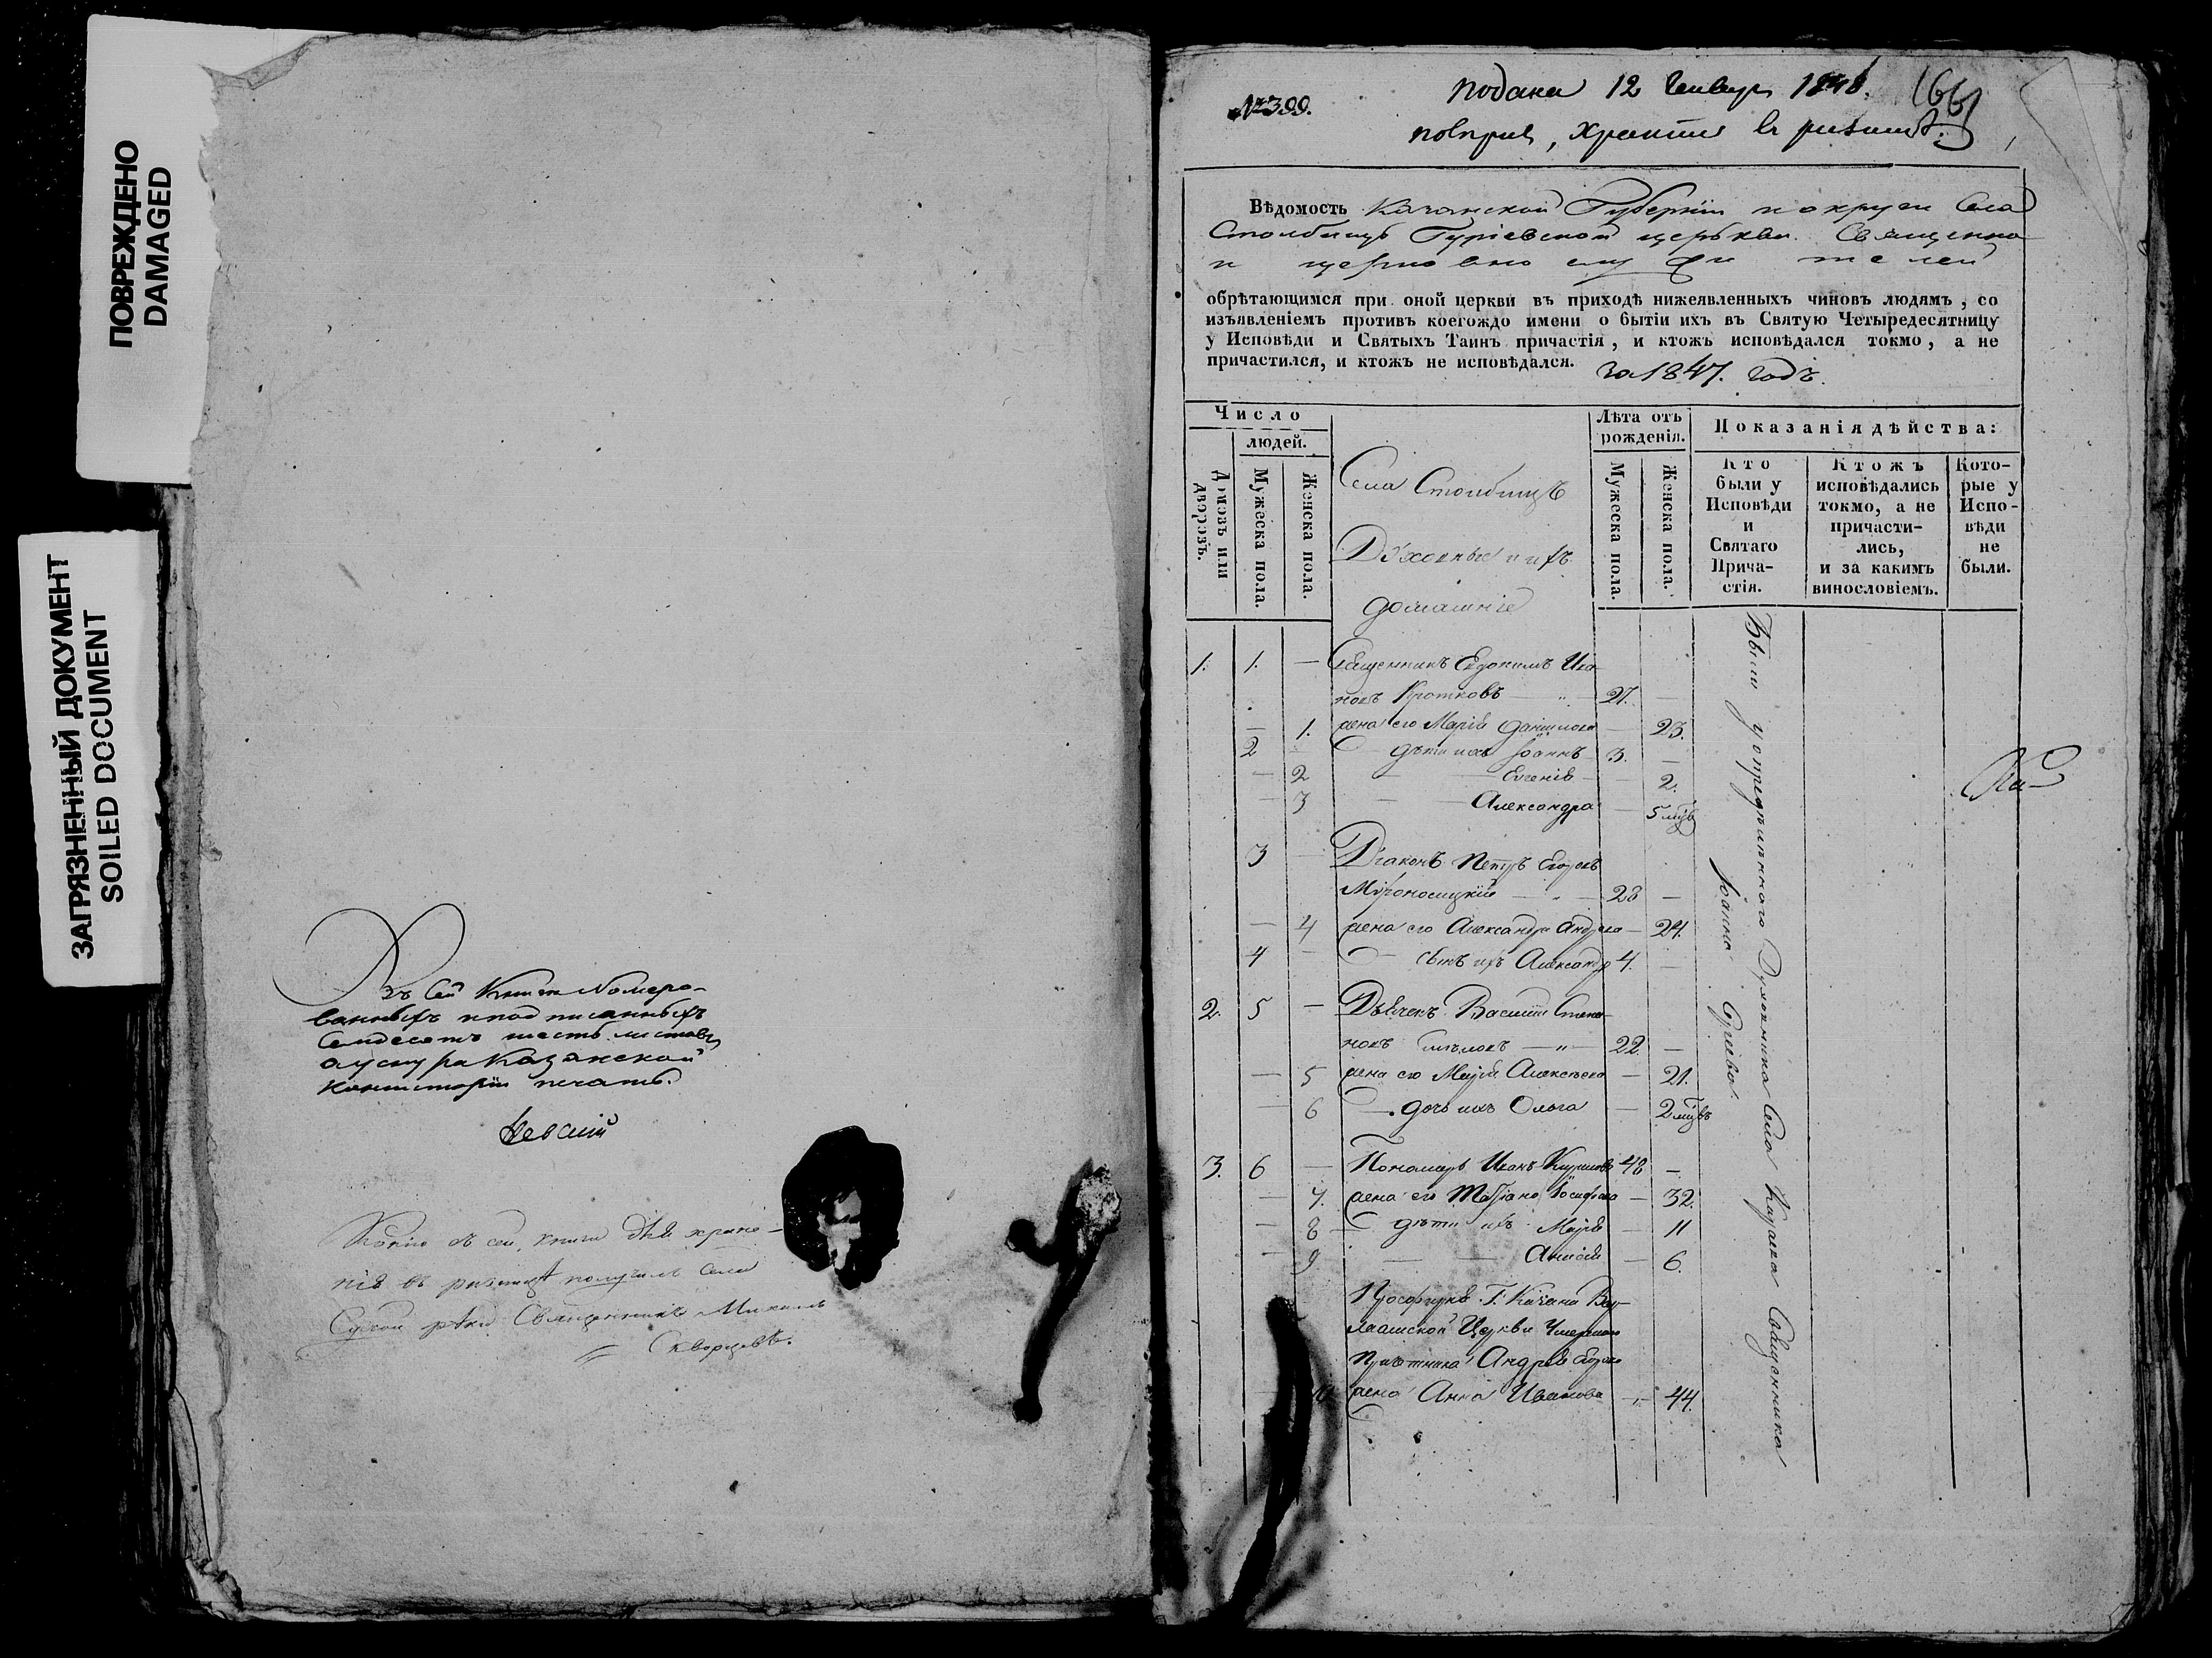 ПОВРЕЖДЕНО
DAMAGED
ЗАГРЯЗНЕННЫЙ ДОКУМЕНТ
SOILED DOCUMENT
Въ сей книгѣ номеро-
ванныхъ и подписанныхъ
семдесятъ шесть листовъ
а у снура Казанской
Консисторіи печать.
Копію съ сей книги для хране-
нія въ ризницѣ получилъ села
Священникъ Михаилъ
Скворцовъ.
№399.
Подана 12 Генваря 1848.
повѣрив, хранить в ризницѣ.
166
Вѣдомость Казанской Губерніи и округи Села
Столбищъ Гуріевской церькви Священно
и церковно служителей
обрѣтающимся при оной церкви въ приходѣ нижеявленныхъ чиновъ людямъ, со
изъявленіемъ противъ коегождо имени о бытіи ихъ въ Святую Четыредесятницу
у Исповѣди и Святыхъ Таинъ причастія, и ктожъ исповѣдался токмо, а не
причастился, и ктожъ не исповѣдался. За 1847. годъ.
Число
людей.
Домовъ или дворовъ.
Мужеска пола.
Женска пола.
Села Столбищъ
Духовные и ихъ
домашніе
Лѣта отъ
рожденія.
Мужеска пола.
Женска пола.
Показанія дѣйства:
Кто
были у
Исповѣди
и
Святаго
Прича-
стія.
Ктожъ
исповѣдались
токмо, а не
причасти-
лись,
и за какимъ
винословіемъ.
Кото-
рые у
Испо-
вѣди
не
были.
1. 1. — Священникъ Евдокимъ Ива-
новъ Кротковъ — 27. —
— 1. жена его Марія Данилова — 23.
2 — дѣти ихъ Іоаннъ 3. —
— 2 Евгенія — 2.
— 3 Александра — 5 мцъ
3 — Діаконъ Петръ Егоровъ
Мѵроносицкій — 28 —
— 4 жена его Александра Андреева — 24.
4 — сынъ ихъ Александръ 4. —
2. 5 — Дьячекъ Василій Степа-
новъ — 22. —
— 5 жена его Марія Алексѣева — 21.
— 6 дочь ихъ Ольга — 2 мцвъ
3. 6 — Пономарь Иванъ 48 —
— 7. жена его Татіана Іосифова — 32.
— 8 дѣти ихъ Марія — 11
— 9 Анисія — 6.
Просфирня Г. Казана Вар-
ламской Церкви Умершаго
Причетника Андрея
— 10 жена Анна Иванова — 44.
Были у опредѣленнаго Духовника Села Священника
Іоанна